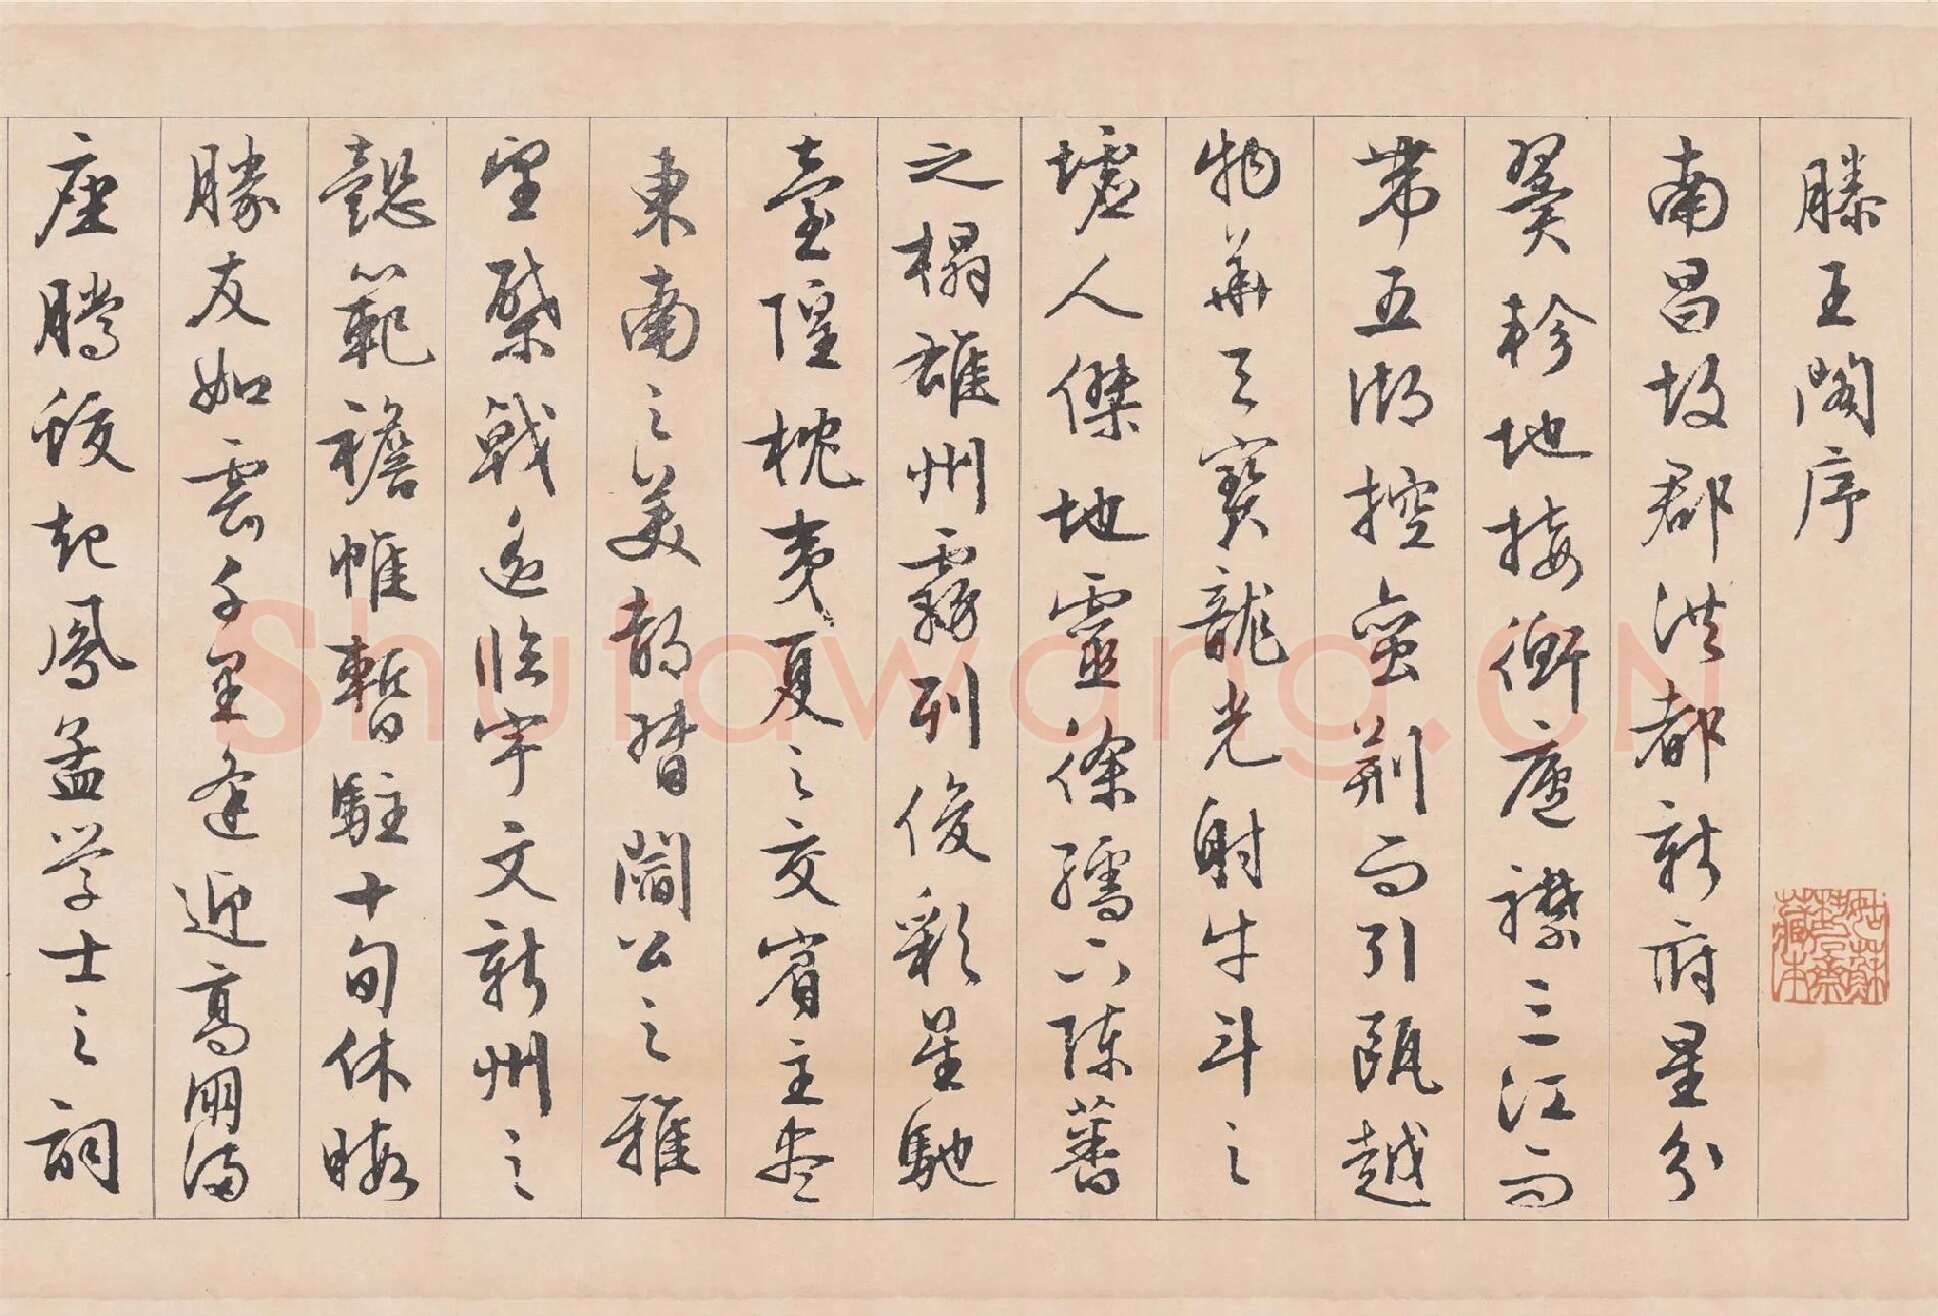 滕王閣序
南昌故郡洪都新府星分
翼軫地接衡廬襟三江而
帶五湖控蛮荊而引甌越
物華天寶龍光射牛斗之
墟人傑地靈徐孺下陳蕃
之榻雄州霧列俊彩星馳
臺隍枕夷夏之交賓主盡
東南之美都督閻公之雅
望棨戟遙臨宇文新州之
懿範襜帷暫駐十旬休暇
勝友如雲千里逢迎高朋滿
座騰蛟起鳳孟学士之詞
Shufawang.CN